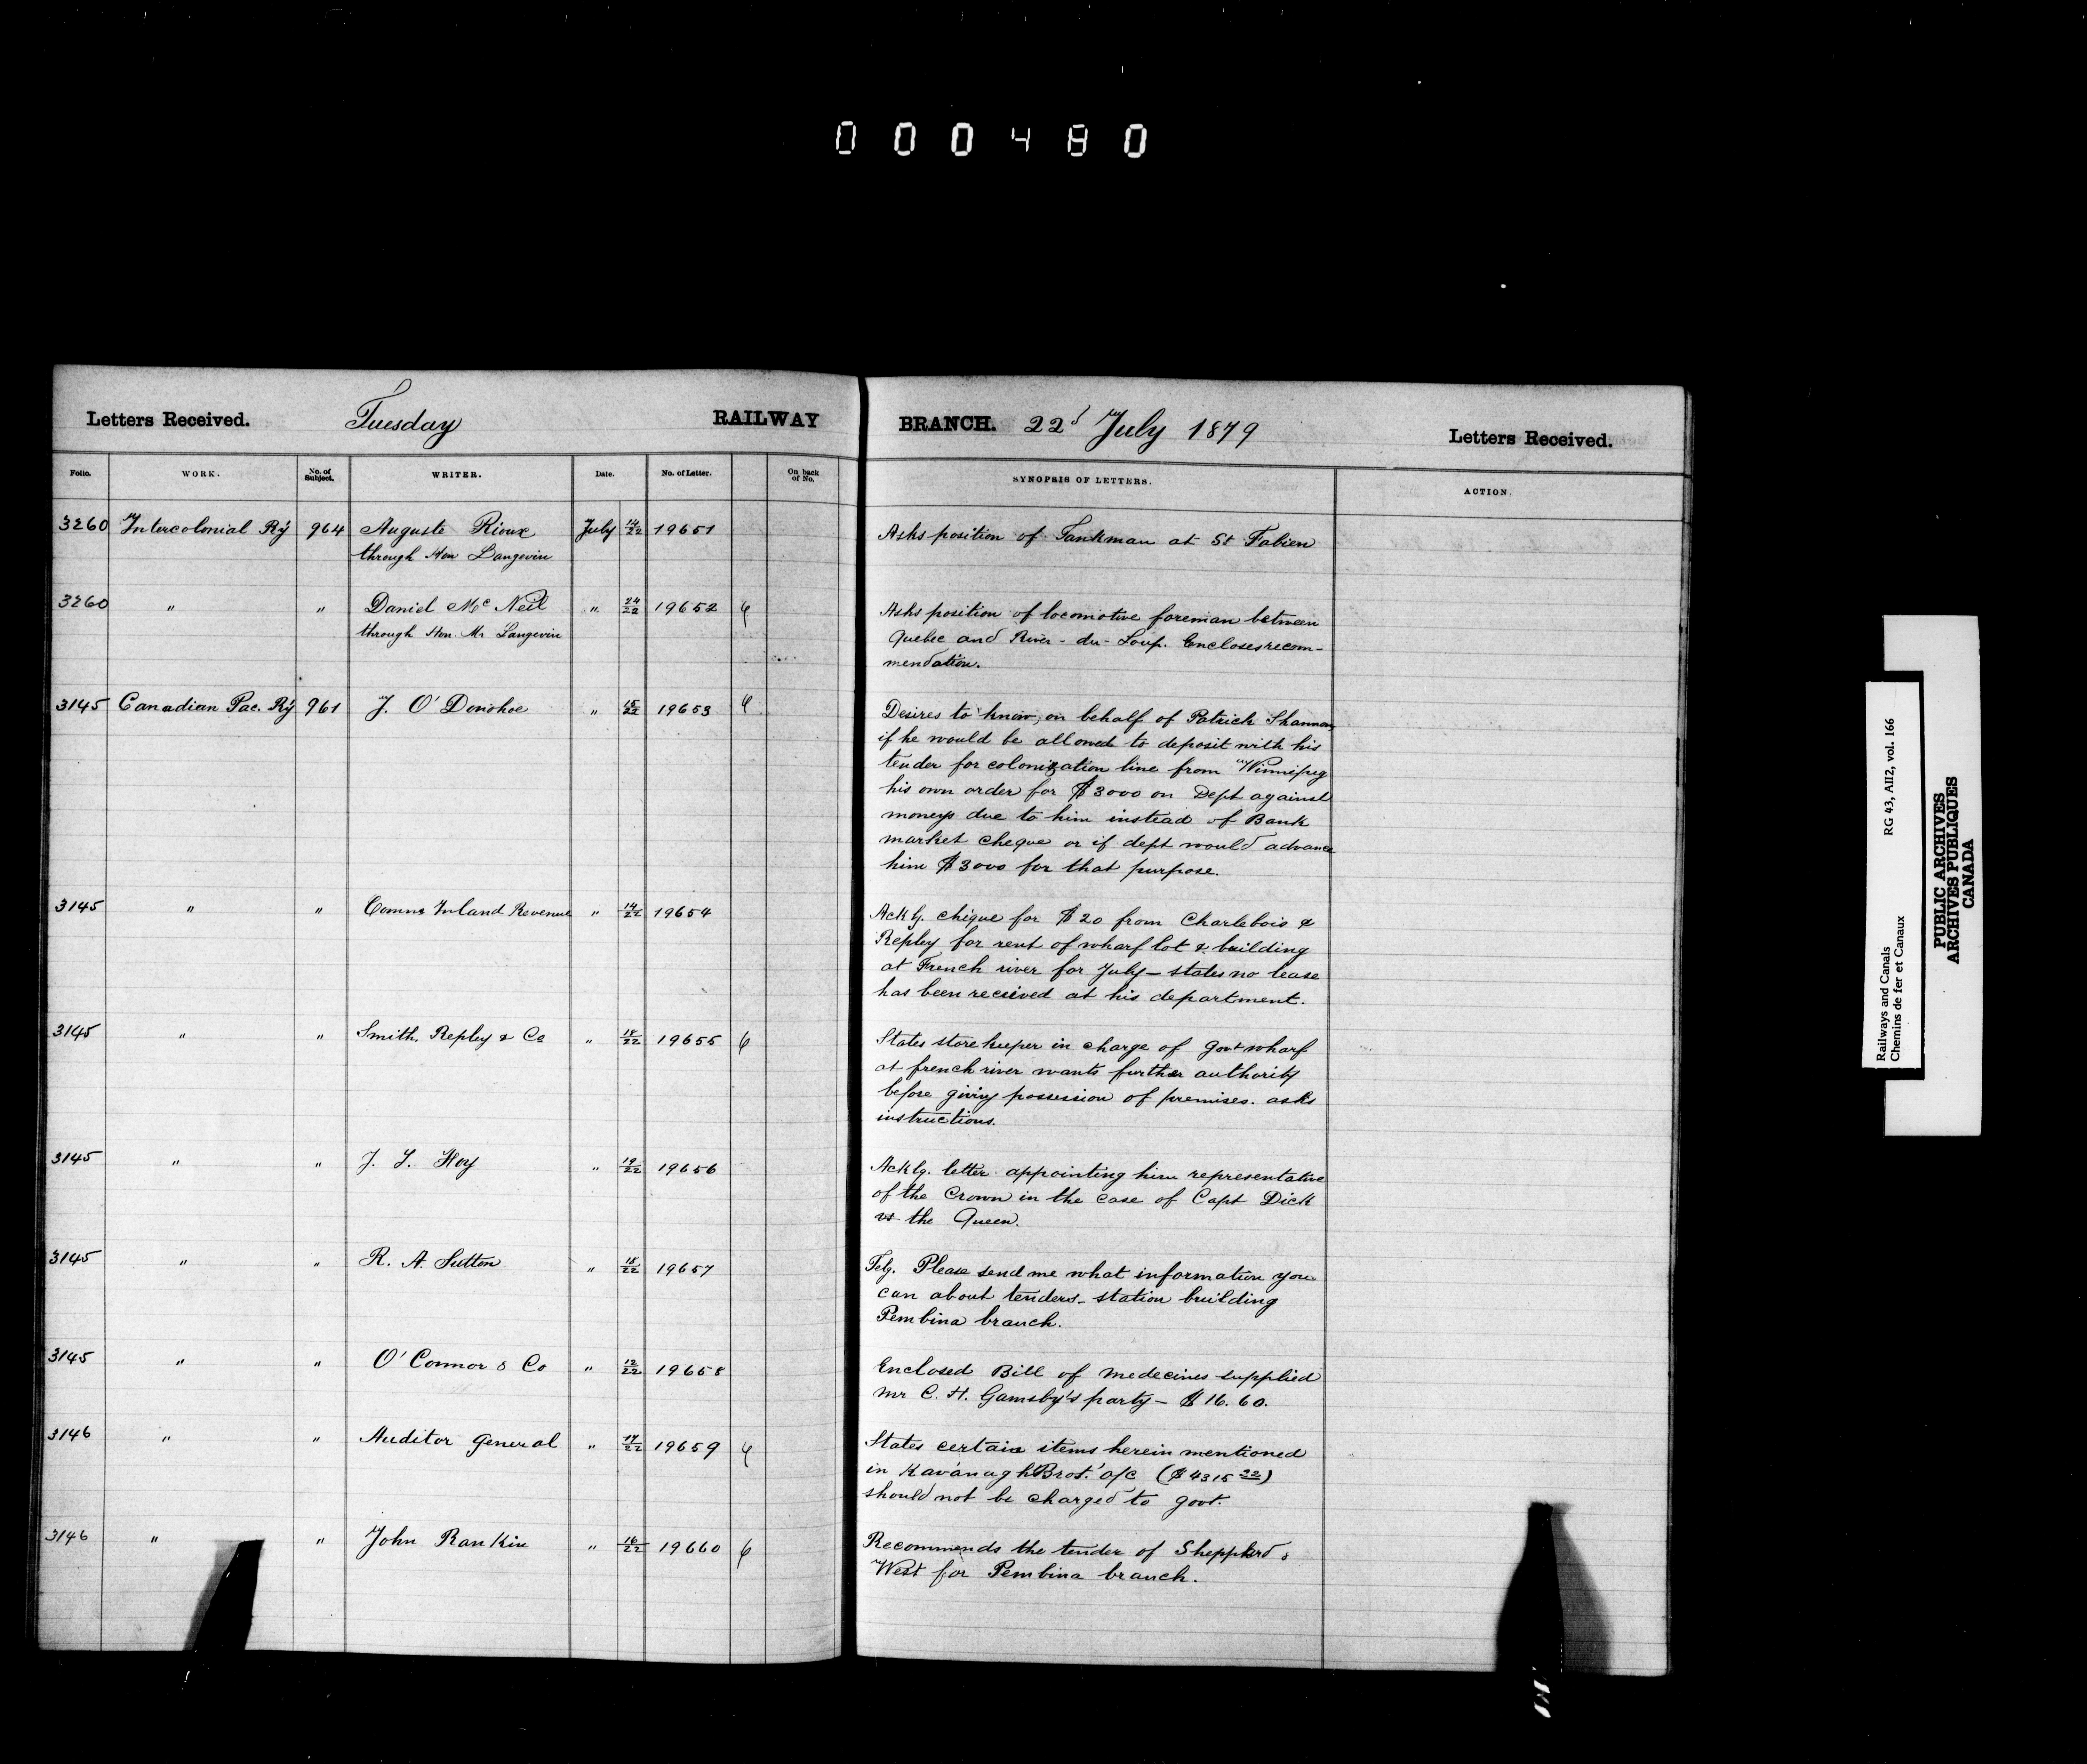 000480
Letters Received. Tuesday RAILWAY BRANCH. 22d July 1879 Letters Received.
Folio. WORK. No. of Subject. WRITER. Date. No. of Letter. On back of No. SYNOPSIS OF LETTERS. ACTION.
3260 Intercolonial Ry 964 Auguste Rioux July 14/22 19651 Asks position of Tankman at St Fabien
through Hon Langevin
3260 " " Daniel McNeil " 24/22 19652 Asks position of locomotive foreman between
through Hon. Mr Langevin Quebec and River-du-Loup. Encloses recom-
mendation.
3145 Canadian Pac. Ry 961 J. O'Donohoe " 15/22 19653 Desires to know, on behalf of Patrick Shannon,
if he would be allowed to deposit with his
tender for colonization line from Winnipeg
his own order for $3000 on Dept against
moneys due to him instead of Bank
market cheque or if dept would advance
him $3000 for that purpose.
3145 " " Comnr Inland Revenue " 14/22 19654 Ackg. cheque for $20 from Charlebois &
Repley for rent of wharf lot & building
at French river for July – states no lease
has been recieved at his department.
3145 " " Smith, Repley & Co " 18/22 19655 States storekeeper in charge of Govt wharf
at french river wants further authority
before giving possession of premises. asks
instructions.
3145 " " J. S. Hoy " 19/22 19656 Acklg. letter appointing him representative
of the Crown in the case of Capt Dick
vs the Queen.
3145 " " R. A. Sutton " 18/22 19657 Telg. Please send me what information you
can about tenders – station building
Pembina branch.
3145 " " O'Connor & Co " 12/22 19658 Enclosed Bill of medecines supplied
Mr C. H. Gamsby's party – $16.60.
3146 " " Auditor General " 17/22 19659 States certain items herein mentioned
in Kavanagh Bros.' a/c ($4315 22)
should not be charged to govt.
3146 " " John Rankin " 16/22 19660 Recommends the tender of Shepperd &
West for Pembina branch.
Railways and Canals RG 43, AII2, vol. 166
Chemins de fer et Canaux
PUBLIC ARCHIVES
ARCHIVES PUBLIQUES
CANADA